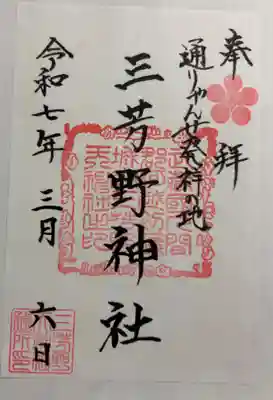 奉拝
通りゃんせ発祥の地
三芳野神社
令和七年三月六日